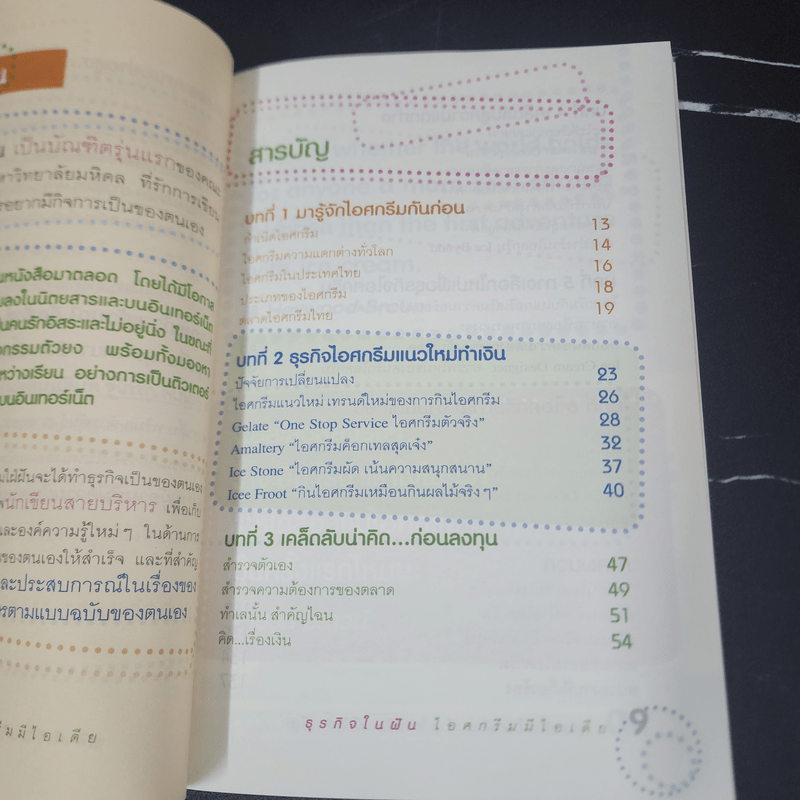 น
น เป็นบัณฑิตรุ่นแรกของคณะ
หาวิทยาลัยมหิดล ที่รักการเขียน
อยากมีกิจการเป็นของตนเอง
นหนังสือมาตลอด โดยได้มีโอกาส
ปลงในนิตยสารและบนอินเทอร์เน็ต
ป็นคนรักอิสระและไม่อยู่นิ่ง ในขณะที่
จกรรมตัวยง พร้อมทั้งมองหา
หว่างเรียน อย่างการเป็นติวเตอร์
บนอินเทอร์เน็ต
มใฝ่ฝันจะได้ทำธุรกิจเป็นของตนเอง
นักเขียนสายบริหาร เพื่อเก็บ
และองค์ความรู้ใหม่ๆ ในด้านการ
ของตนเองให้สำเร็จ และที่สำคัญ
และประสบการณ์ในเรื่องของ
รตามแบบฉบับของตนเอง
รีมมีไอเดีย
สารบัญ
บทที่ 1 มารู้จักไอศกรีมกันก่อน
กำเนิดไอศกรีม 13
ไอศกรีมความแตกต่างทั่วโลก 14
ไอศกรีมในประเทศไทย 16
ประเภทของไอศกรีม 18
ตลาดไอศกรีมไทย 19
บทที่ 2 ธุรกิจไอศกรีมแนวใหม่ทำเงิน
ปัจจัยการเปลี่ยนแปลง 23
ไอศกรีมแนวใหม่ เทรนด์ใหม่ของการกินไอศกรีม 26
Gelate “One Stop Service ไอศกรีมตัวจริง” 28
Amaltery “ไอศกรีมค็อกเทลสุดเจ๋ง” 32
Ice Stone “ไอศกรีมผัด เน้นความสนุกสนาน” 37
Icee Froot “กินไอศกรีมเหมือนกินผลไม้จริงๆ” 40
บทที่ 3 เคล็ดลับน่าคิด...ก่อนลงทุน
สำรวจตัวเอง 47
สำรวจความต้องการของตลาด 49
ทำเลนั้น สำคัญไฉน 51
คิด...เรื่องเงิน 54
ธุรกิจในฝัน ไอศกรีมมีไอเดีย 9